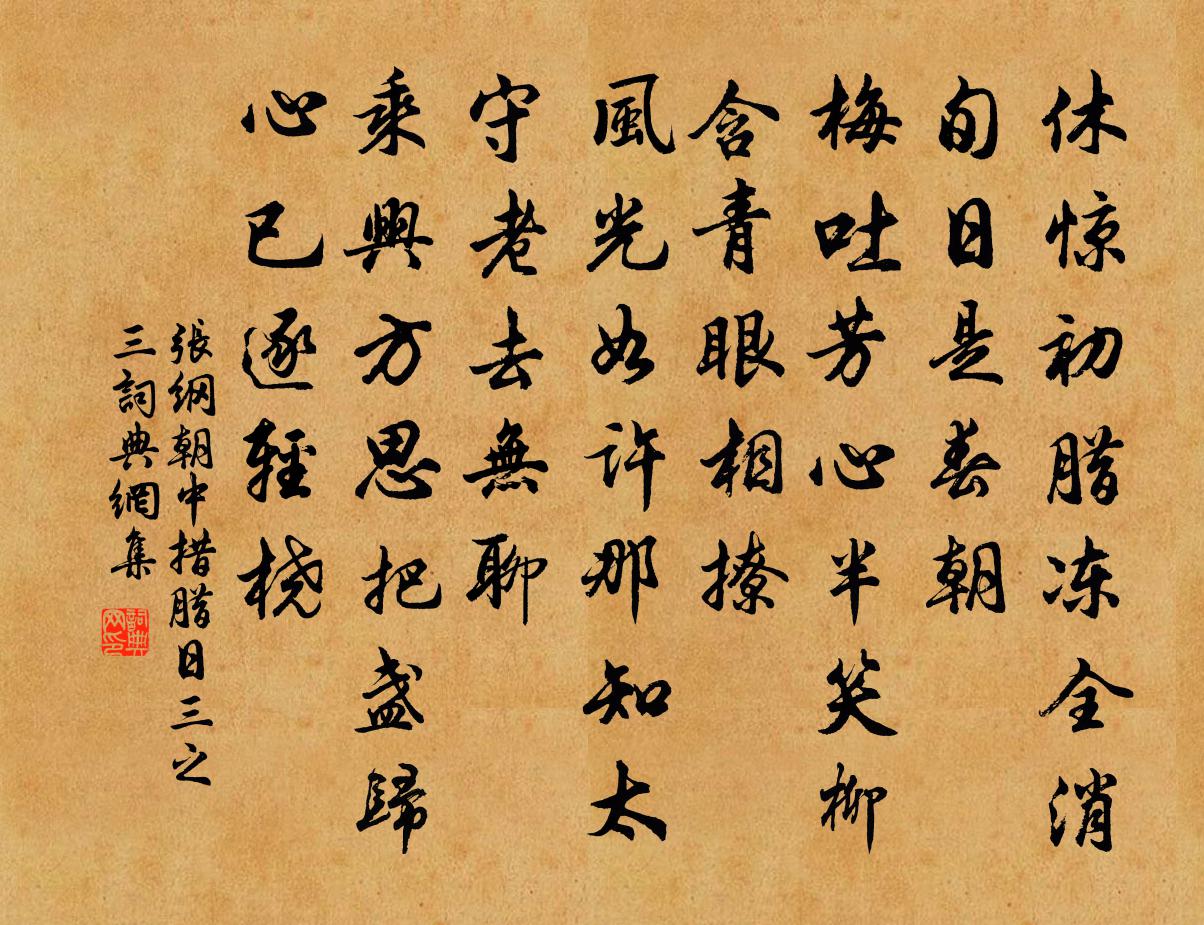 休惊初腊冻全消
旬日是春朝
梅吐芳心半笑柳
含青眼相撩
風光如许那知太
守老去無聊
乘興方思把盏歸
心已逐輕桡
張纲朝中措腊日三之
三詞典網集
詞典网印